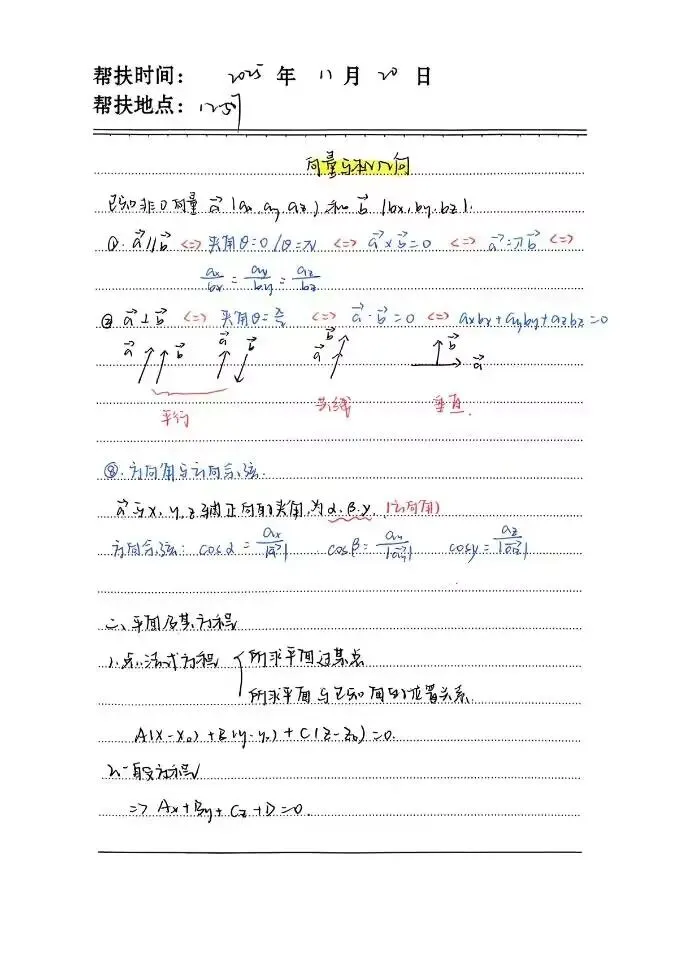 帮扶时间: 2025 年 11 月 20 日
帮扶地点:
向量与解析几何
已知非0向量 a⃗ (ax, ay, az) 和 b⃗ (bx, by, bz).
①. a⃗ // b⃗ <=> 夹角θ=0 / θ=π <=> a⃗ × b⃗ = 0 <=> a⃗ = λb⃗ <=>
ax/bx = ay/by = az/bz
② a⃗ ⊥ b⃗ <=> 夹角θ=π/2 <=> a⃗ · b⃗ = 0 <=> axbx + ayby + azbz = 0
a⃗ b⃗ a⃗ b⃗ a⃗ b⃗ b⃗ a⃗
平行 共线 垂直.
③. 方向角与方向余弦.
a⃗ 与x, y, z轴正向的夹角, 为 α, β, γ. (方向角)
方向余弦: cosα = ax/|a⃗| cosβ = ay/|a⃗| cosγ = az/|a⃗|
二、平面及其方程
1. 点法式方程 { 所求平面过某点
所求平面与已知面的位置关系.
A(x-x₀) + B(y-y₀) + C(z-z₀) = 0.
2. 一般方程
=> Ax + By + Cz + D = 0.